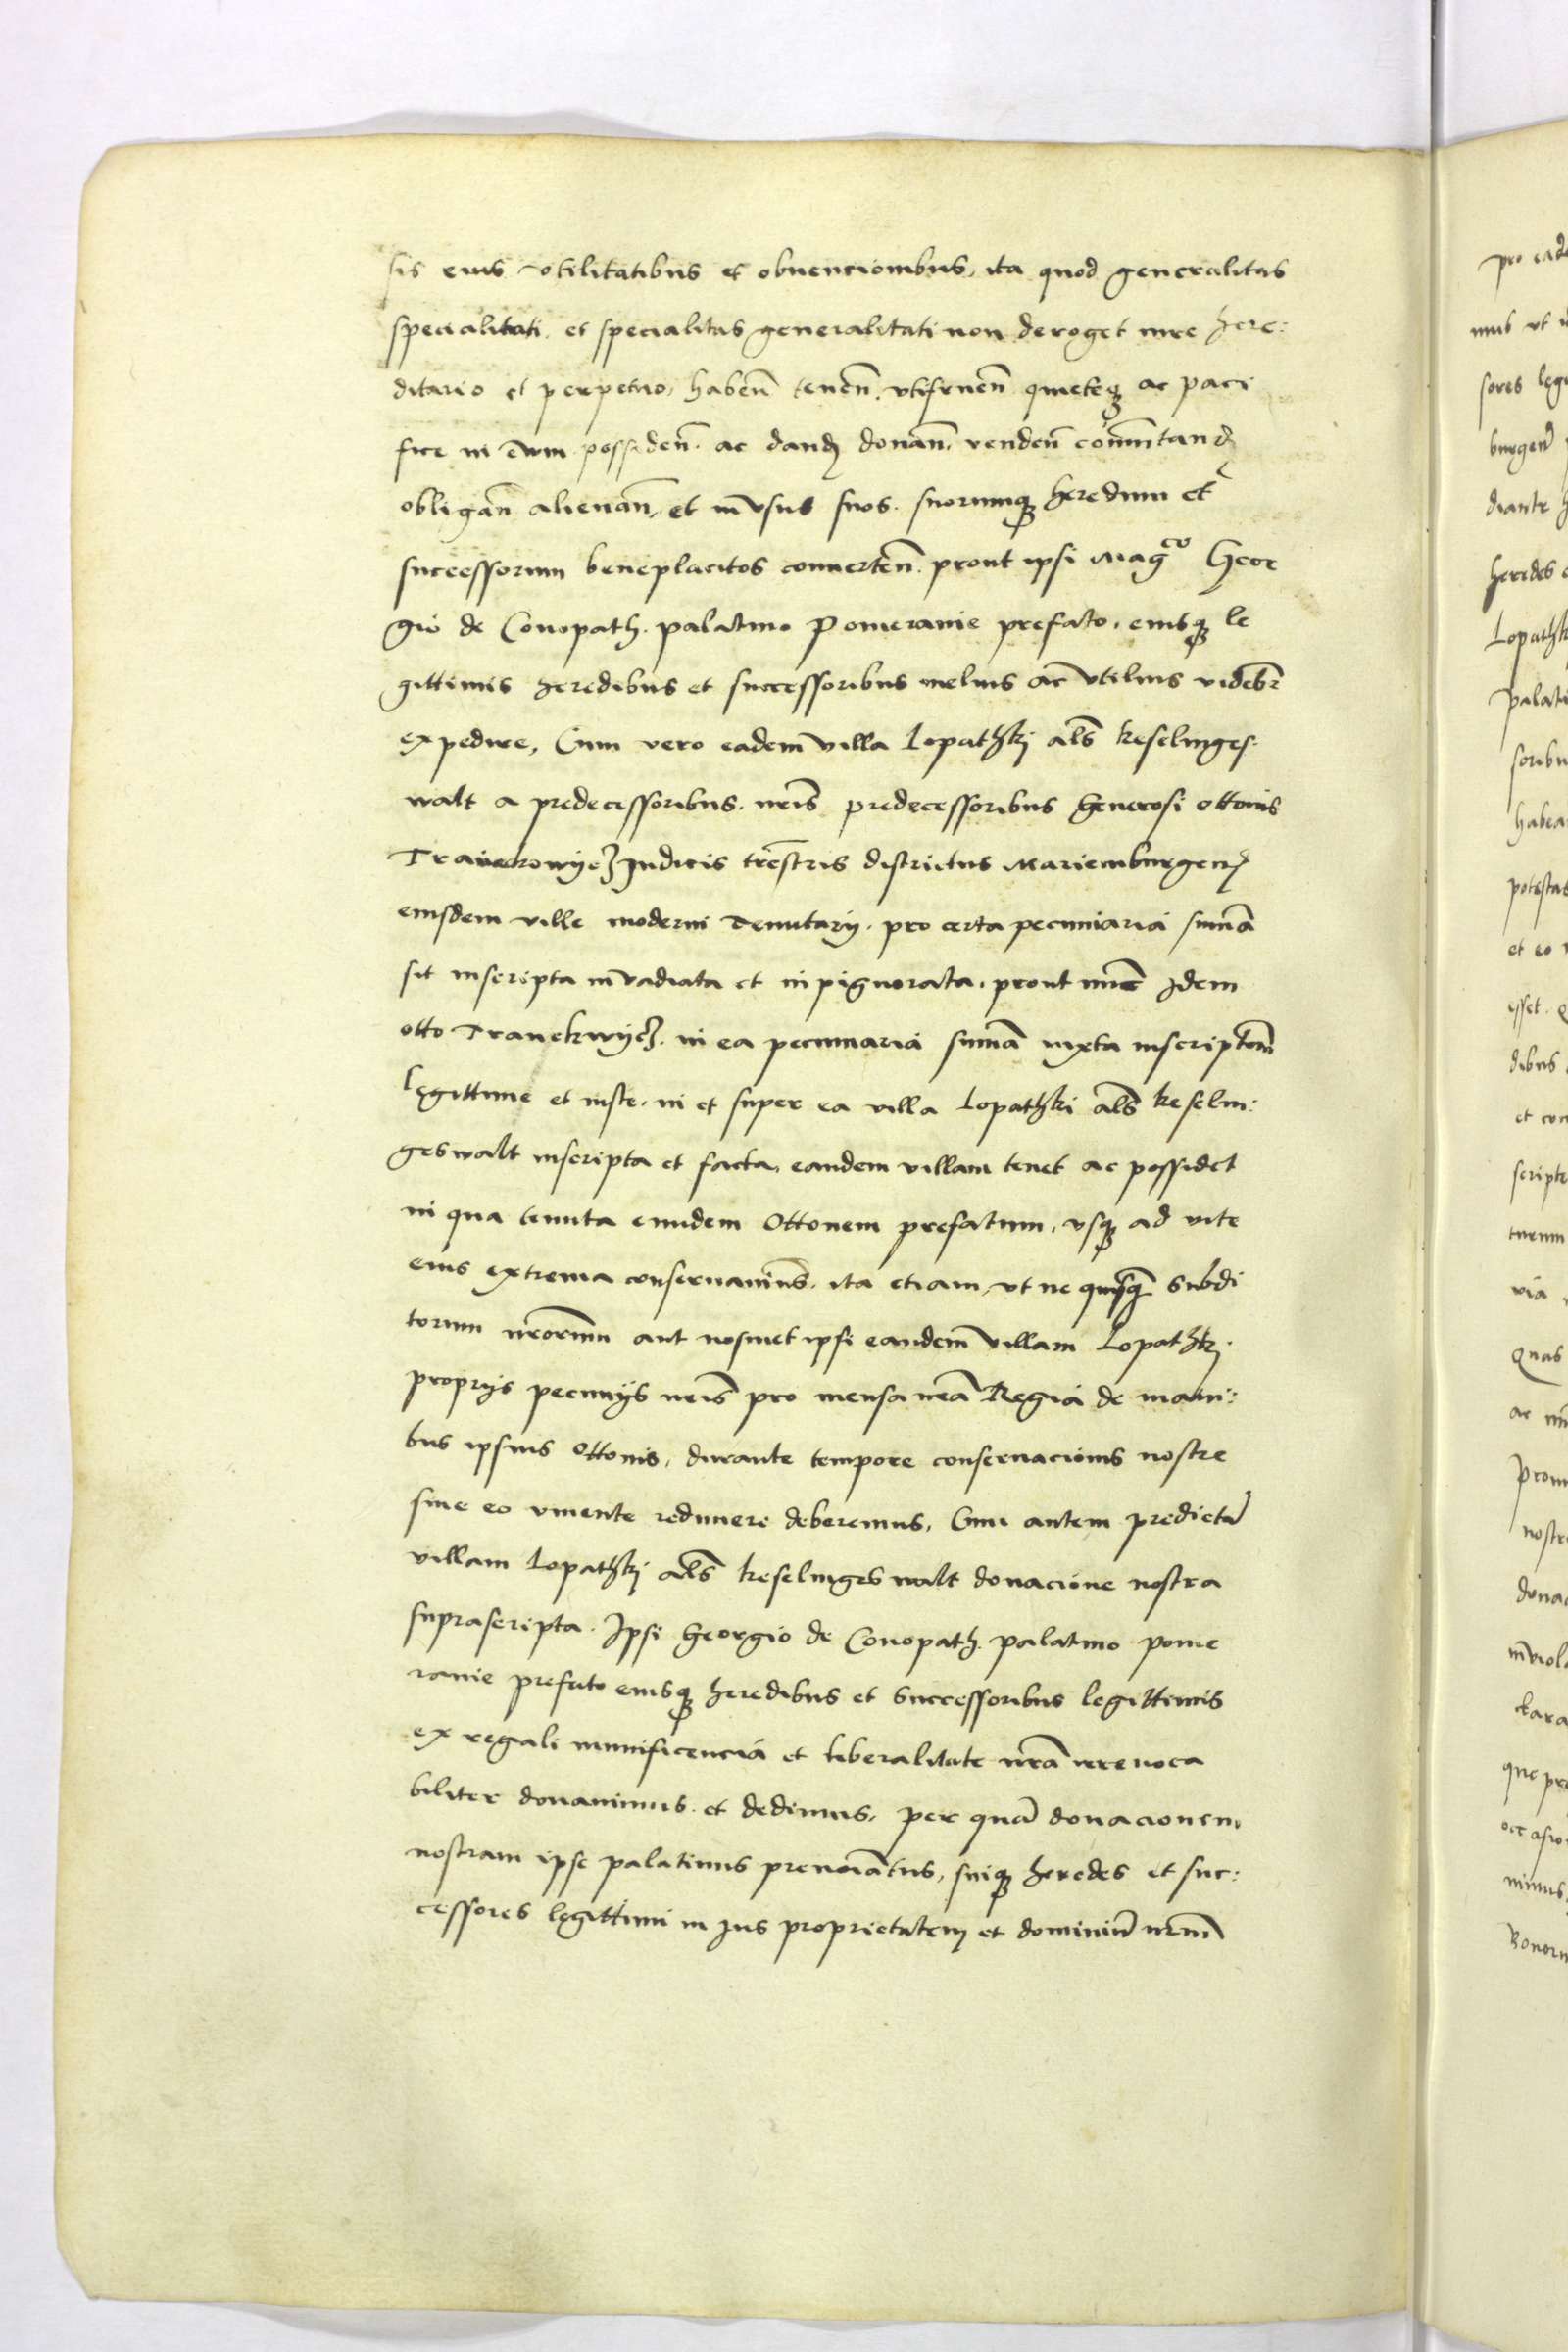 sis eius vtilitatibus et obuencionibus, ita quod generalitas
specialitati. et specialitas generalitati non deroget iure here:
ditario et perpetuo, habeñ teneñ. vtifrueñ quieteq ac paci
fice in ēwm possideñ. ac dand donañ. vendeñ cōmutand
obligañ alienañ, et in vsus suos. suorumq heredum et
successorum beneplacitos conuerteñ. prout ipsi Magco Geor
gio de Conopath. palatino Pomeranie prefato, eiusq le
gittimis heredibus et successoribus melius ac vtilius videbr
expedire, Cum vero eadem villa Lopathki als keselinges:
walt a predecessoribus. nris predecessoribus Generosi ottonis
Tranckowycz Iudicis trestris districtus Mariemburgen
eiusdem ville moderni Tenutarij. pro certa pecuniaria suma
sit inscripta invadiata et inpignorata, prout nunc Idem
otto Tranckwycz. in ea pecuniaria suma iuxta inscriptom
legittime et iuste. in et super ea villa Lopathki als keselin:
geswalt inscripta et facta, eandem villam tenet ac possidet
in qua tenuta eundem Ottonem prefatum, vsq ad vite
eius extrema conseruauimus. ita etiam, vt ne quisq subdi
torum nrorum aut nosmet ipsi eandem villam Lopathki.
proprijs pecunijs nris pro mensa nra Regia de mani:
bus ipsius Ottonis, durante tempore conseruacionis nostre
siue eo viuente redimere deberemus, Cum autem predictā
villam Lopathki als keselinges walt donacione nostra
suprascripta. Ipsi Georgio de Conopath. palatino pome
ranie prefato eiusq heredibus et successoribus legittimis
ex regali munificencia et liberalitate nra irreuoca
biliter donauimus. et dedimus, per quā donacionem
nostram ipse palatinus prenoiatus, suiq heredes et suc:
cessores legittimi in Ius proprietatem et dominiū nrm
pro
mus vt
sores
diante
heredes
Lopathk
palati
soribu
habea
potestas
et eo
esset.
dibus
et con
scripte
turum
via
Quas
ac
Prom
nostr
dona
inviol
que pr
occasio
nimus
Bonoru